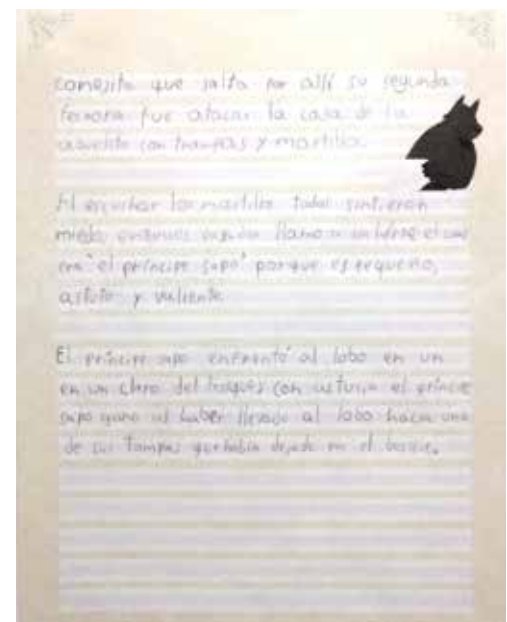 conejito que salta por allí su segunda
fue atacar la casa de la
abuelita con trampas y martillos.
Al escuchar los martillos todos sintieron
miedo entonces llamo a un héroe el cual
era "el príncipe sapo" porque es pequeño,
astuto y valiente
El príncipe sapo enfrentó al lobo en un
en un claro del bosques con astucia el príncipe
sapo gano al haber llevado al lobo hacia una
de sus tampas que había dejado en el bosque.